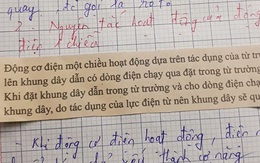 quay, đc gọi là rôto
Nguyên tắc hoạt động của động
điện 1 chiều
Động cơ điện một chiều hoạt động dựa trên tác dụng của từ trư
lên khung dây dẫn có dòng điện chạy qua đặt trong từ trường
Khi đặt khung dây dẫn trong từ trường và cho dòng điện chạ
khung dây, do tác dụng của lực điện từ nên khung dây sẽ qu
Khi động cơ điện hoạt động, điện n
thành cơ năng